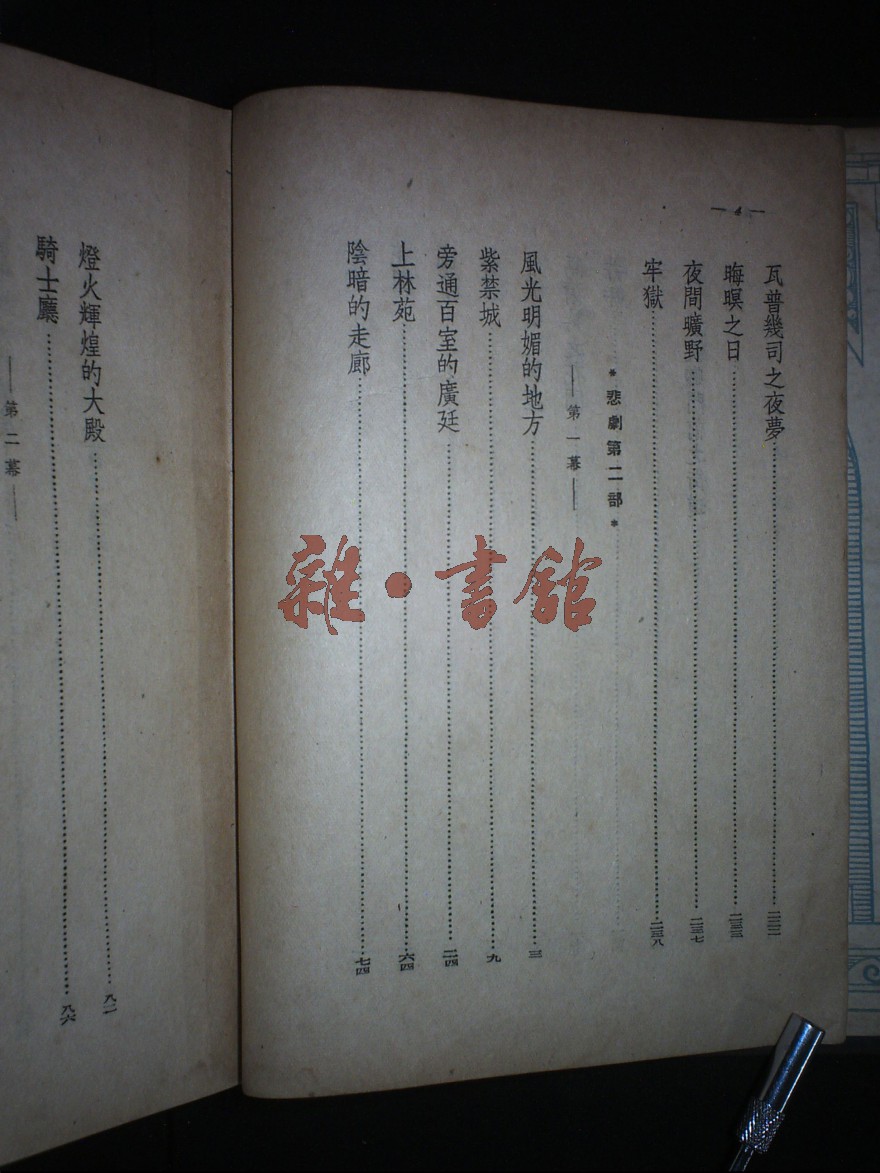 — 4 —
瓦普幾司之夜夢………二二二
晦暝之日………二三三
夜間曠野………二三七
牢獄………二三八
* 悲劇第二部 *
——第一幕——
風光明媚的地方………三
紫禁城………九
旁通百室的廣廷………二四
上林苑………六四
陰暗的走廊………七四
燈火輝煌的大殿………八二
騎士廳………八六
——第二幕——
雜·書館